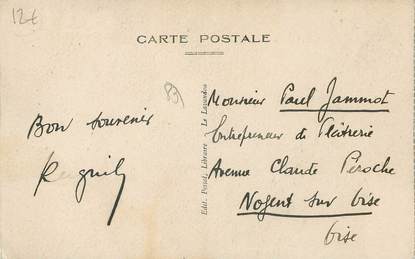 12€
CARTE POSTALE
Bon souvenir
83
Edit. Librairie Le Lavandou
Monsieur Paul Jammot
Entrepreneur de Plâtrerie
Avenue Claude Péroche
Nogent sur Oise
Oise